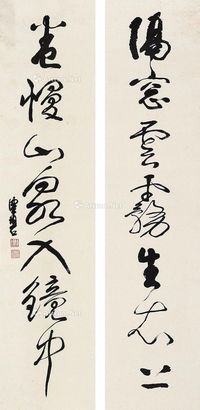 隔窗雲霧生衣上
卷幔山泉入鏡中